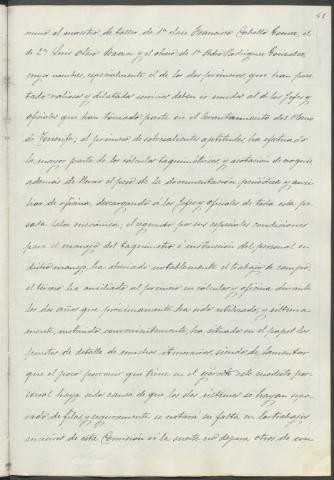 48
mino el maestro de taller de 1ª clase Francisco Cabello Gomez, el
de 2ª Luis Olmo Baena y el obrero de 1ª Pedro Rodriguez Gonzalez,
cuyos nombres, especialmente el de los dos primeros que han pres-
tado valiosos y dilatados servicios deben ir unidos al de los Jefes y
oficiales que han tomado parte en el levantamiento del Plano
de Tenerife; el primero de sobresalientes aptitudes, ha efectuado
la mayor parte de los cálculos taquimétricos y acotación de croquis
ademas de llevar el peso de la documentación periódica y auxi-
liar de oficina, descargando á los Jefes y oficiales de toda esta pe-
sada labor mecánica; el segundo por sus especiales condiciones
para el manejo del taquímetro é instrucción del personal en
dicho manejo, ha aliviado notablemente el trabajo de campo;
el tercero ha auxiliado al primero en cálculos y oficina durante
los dos años que próximamente ha sido utilizado, y ultima-
mente, instruido convenientemente, ha situado en el papel los
puntos de detalle de muchos itinerarios, siendo de lamentar
que el poco porvenir que tiene en el ejército este modesto per-
sonal haya sido causa de que los dos ultimos se hayan sepa-
rado de filas y seguramente se notará su falta en los trabajos
sucesivos de esta Comisión si la suerte no depara otros de con